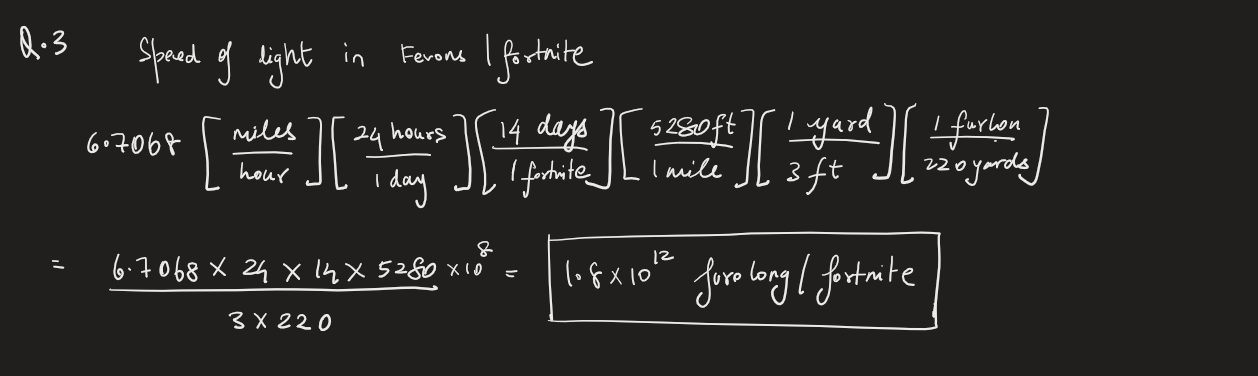 Q.3 Speed of light in Ferons / fortnite
6.7068 [miles / hour] [24 hours / 1 day] [14 days / 1 fortnite] [5280ft / 1 mile] [1 yard / 3 ft] [1 furlon / 220 yards]
= 6.7068 × 24 × 14 × 5280 × 10^8 / 3 × 220 = 1.8 × 10^12 furolong / fortnite